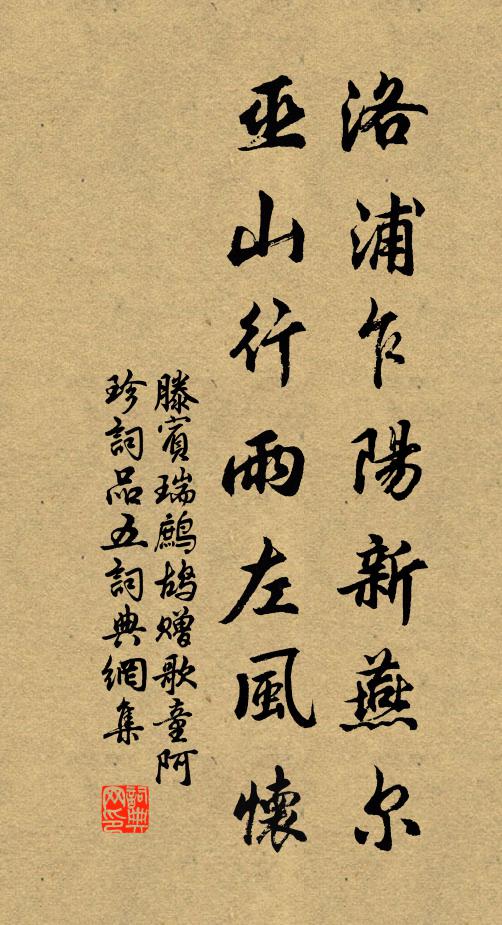 洛浦乍陽新燕尔
巫山行雨左風懷
滕賓瑞鷓鴣赠歌童阿
珍詞品五詞典網集
詞典網印